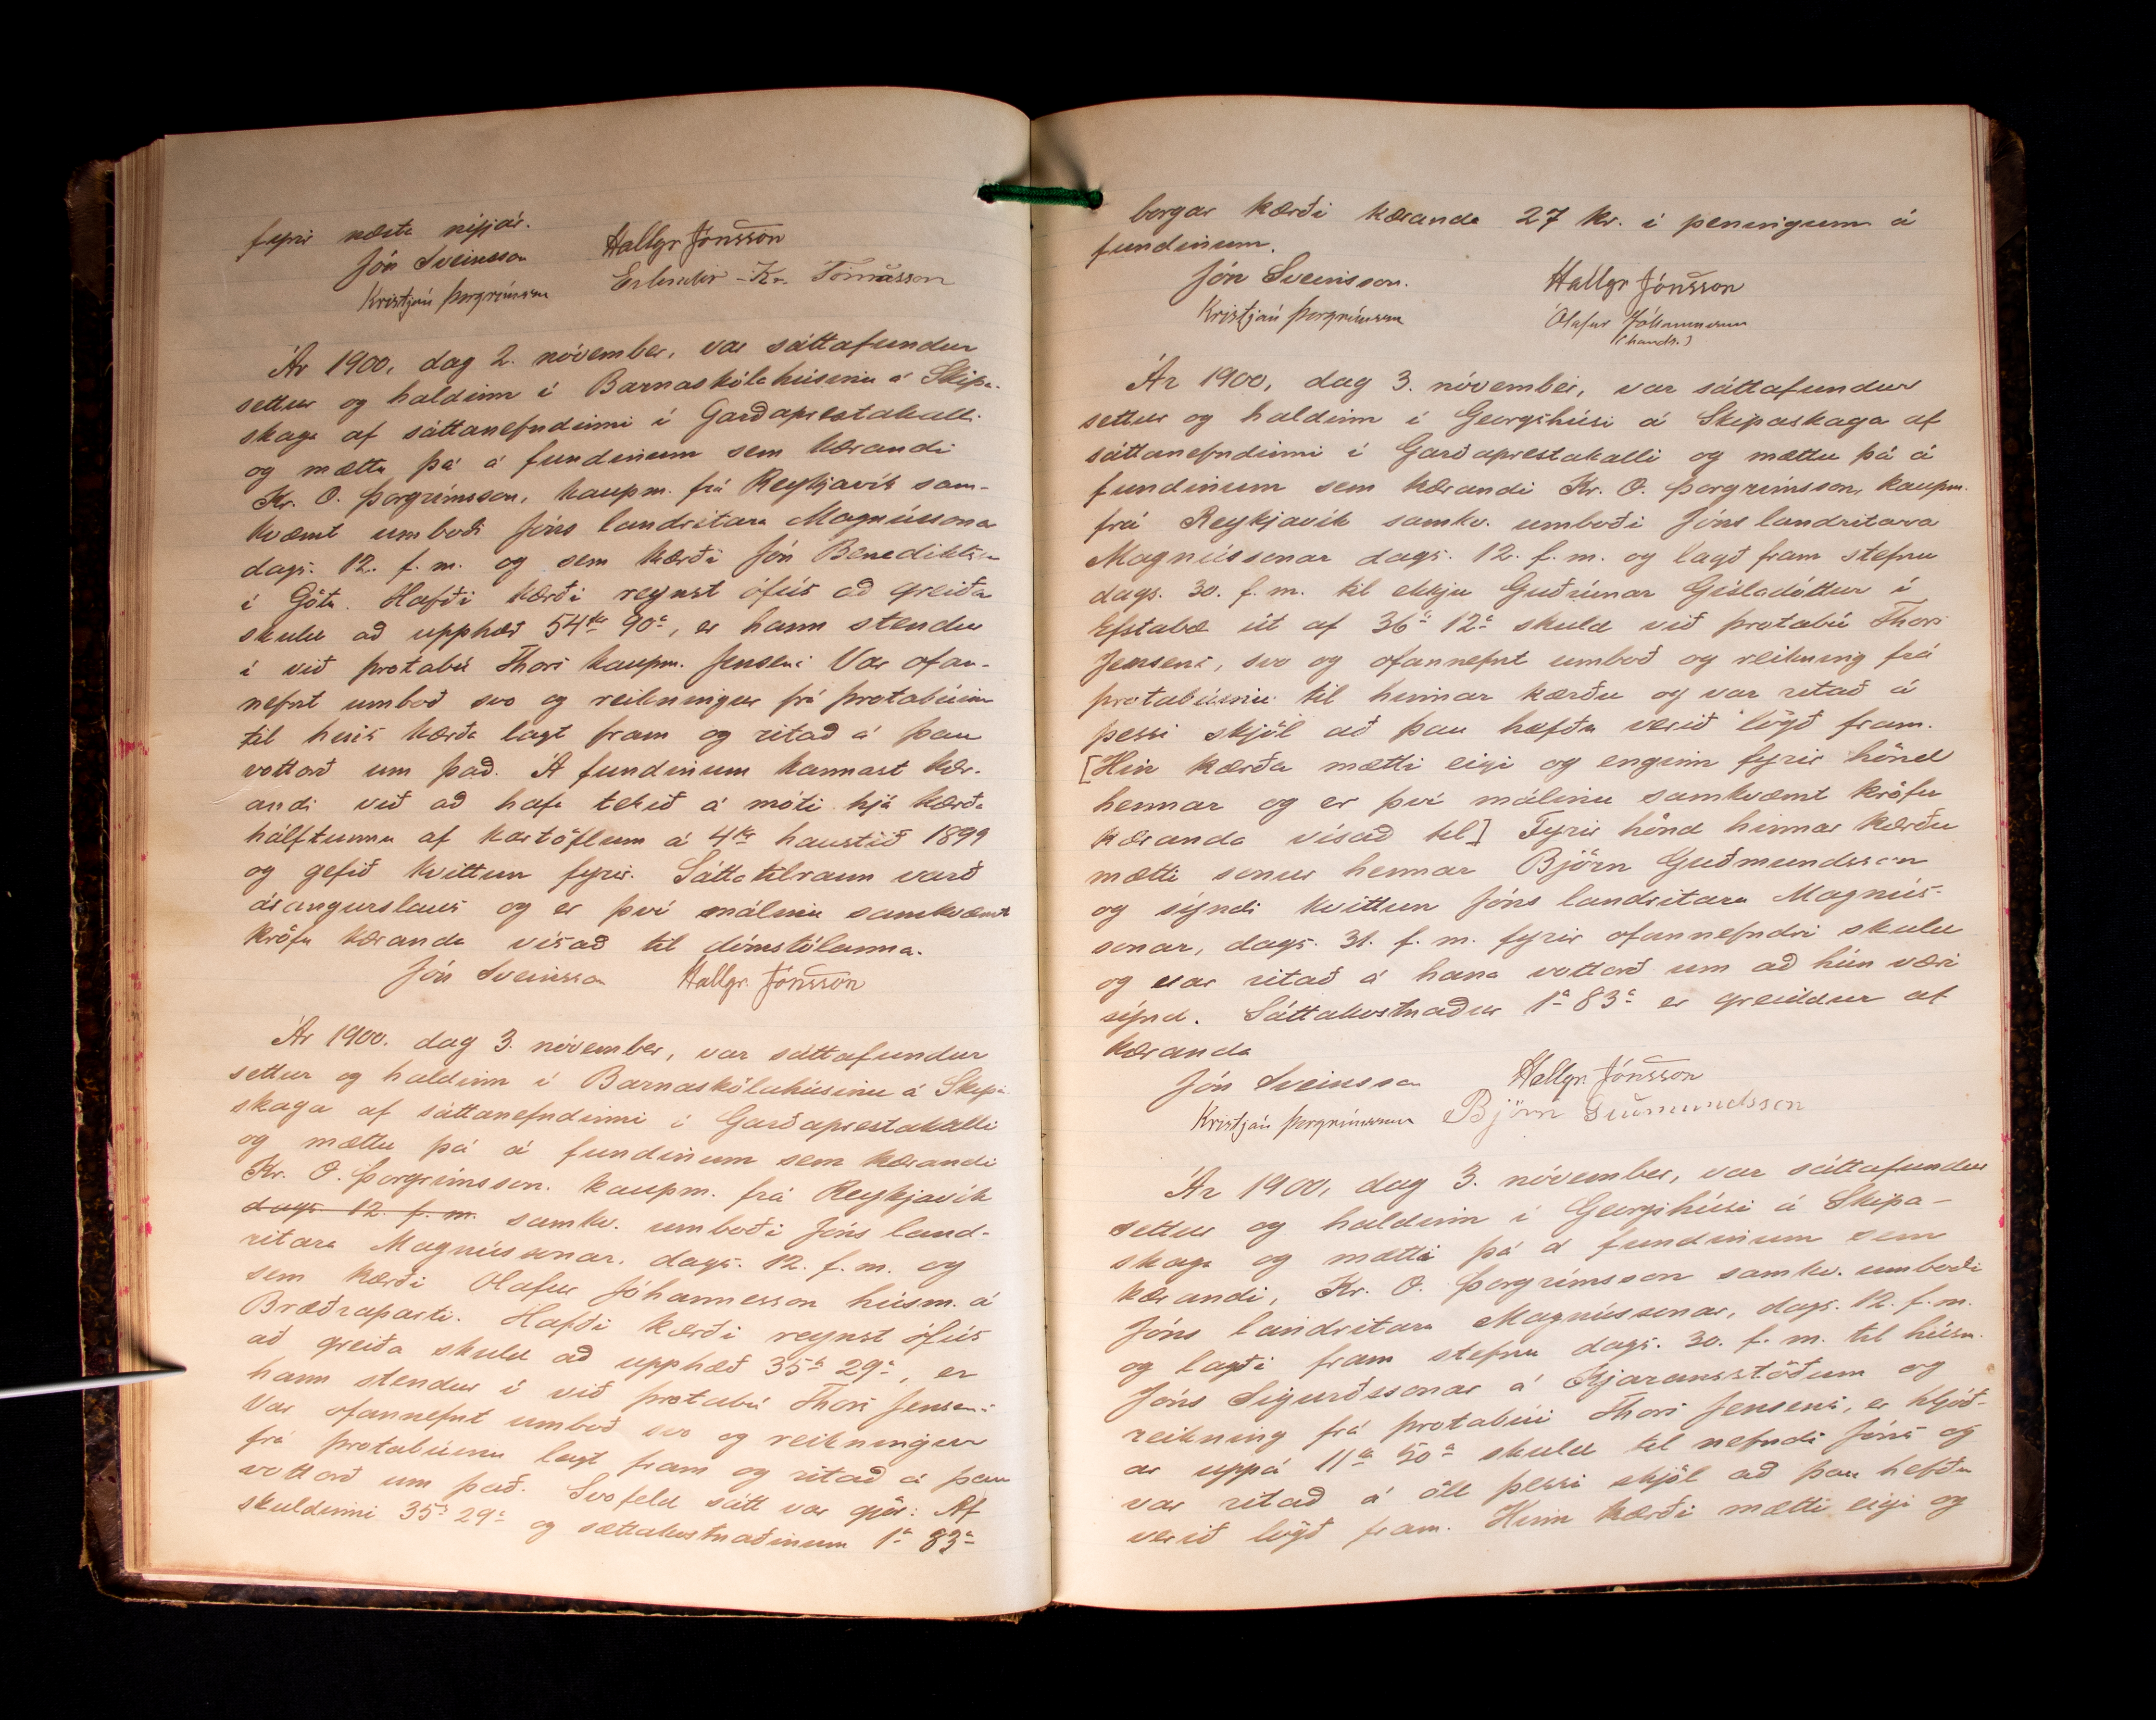 fyrir næsta nýjár.
Jón Sveinsson Hallgr Jónsson
Kristján Þorgrímsson Erlendur Kr. Tómasson
Ár 1900, dag 2. nóvember, var sáttafundur
settur og haldinn í Barnaskólahúsinu á Skipa-
skaga af sáttanefndinni í Garðaprestakalli
og mættu þá á fundinum sem kærandi
Kr. O. Þorgrímsson, kaupm. frá Reykjavík sam-
kvæmt umboði Jóns landritara Magnússonar
dags. 12. f. m. og sem kærði Jón Benediktsson
í Götu. Hafði kærði reynst ófús að greiða
skuld að upphæð 54 kr 90 a, er hann stendur
í við þrotabú Thors kaupm. Jensens. Var ofan-
nefnt umboð svo og reikningur frá þrotabúinu
til hins kærða lagt fram og ritað á þau
vottorð um það. Á fundinum kannast kær-
andi við að hafa tekið á móti hjá kærða
hálftunnu af kartöflum á 4 kr haustið 1899
og gefið kvittun fyrir. Sáttatilraun varð
árangurslaus og er því málinu samkvæmt
kröfu kæranda vísað til dómstólanna.
Jón Sveinsson Hallgr. Jónsson
Ár 1900. dag 3. nóvember, var sáttafundur
settur og haldinn í Barnaskólahúsinu á Skipa-
skaga af sáttanefndinni í Garðaprestakalli
og mættu þá á fundinum sem kærandi
Kr. O. Þorgrímsson. kaupm. frá Reykjavík
dags 12. f. m. samkv. umboði Jóns land-
ritara Magnússonar, dags. 12. f. m. og
sem kærði Olafur Jóhannesson húsm. á
Bræðraparti. Hafði kærði reynst ófús
að greiða skuld að upphæð 35 kr 29 a, er
hann stendur í við þrotabú Thors Jensens.
Var ofannefnt umboð svo og reikningur
frá þrotabúinu lagt fram og ritað á þau
vottorð um það. Svofeld sátt var gjör: Af
skuldinni 35 kr 29 a og sáttakostnaðinum 1 kr 83 a
borgar kærði kæranda 27 kr. í peningum á
fundinum.
Jón Sveinsson. Hallgr Jónsson
Kristján Þorgrímsson Ólafur Jóhannesson
(hands.)
Ár 1900, dag 3. nóvember, var sáttafundur
settur og haldinn í Georgshúsi á Skipaskaga af
sáttanefndinni í Garðaprestakalli og mættu þá á
fundinum sem kærandi Kr. O. Þorgrímsson, kaupm.
frá Reykjavík samkv. umboði Jóns landritara
Magnússonar dags. 12. f. m. og lagð fram stefnu
dags. 30. f. m. til ekkju Guðrúnar Gísladóttur í
Efstabæ út af 36 kr 12 a skuld við þrotabú Thors
Jensens, svo og ofannefnt umboð og reikning frá
þrotabúinu til hinnar kærðu og var ritað á
þessi skjöl að þau hefðu verið lögð fram.
[Hin kærða mætti eigi og enginn fyrir hönd
hennar og er því málinu samkvæmt kröfu
kæranda vísað til] Fyrir hönd hinnar kærðu
mætti sonur hennar Björn Guðmundsson
og sýndi kvittun Jóns landritara Magnús-
sonar, dags. 31. f. m. fyrir ofannefndri skuld
og var ritað á hana vottorð um að hún væri
sýnd. Sáttakostnaður 1 kr 83 a er greiddur af
kæranda
Jón Sveinsson Hallgr Jónsson
Kristján Þorgrímsson Björn Guðmundsson
Ár 1900, dag 3. nóvember, var sáttafundur
settur og haldinn í Georgshúsi á Skipa-
skaga og mætti þá á fundinum sem
kærandi, Kr. O. Þorgrímsson samkv. umboði
Jóns landritara Magnússonar, dags. 12. f. m.
og lagði fram stefnu dags. 30. f. m. til húsm.
Jóns Sigurðssonar á Kjaransstöðum og
reikning frá þrotabúi Thors Jensens, er hljóð-
ar uppá 11 kr 50 a skuld til nefnds Jóns og
var ritað á öll þessi skjöl að þau hefðu
verið lögð fram. Hinn kærði mætti eigi og